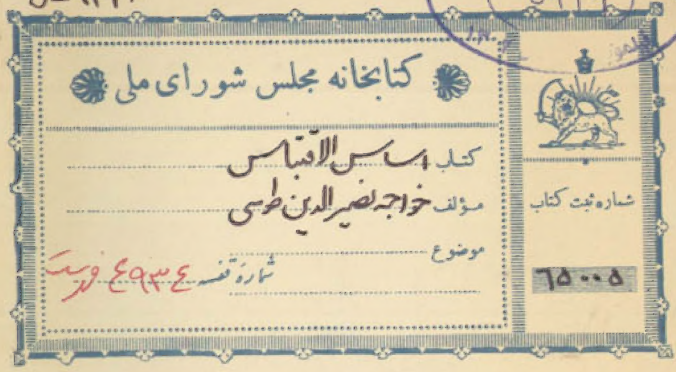 کتابخانه مجلس شورای ملی
کتاب اساس الاقتباس
مؤلف خواجه نصیر الدین طوسی
موضوع
شمارهٔ قفسه ۴۹۳۴
شماره ثبت کتاب
۶۵۰۰۵